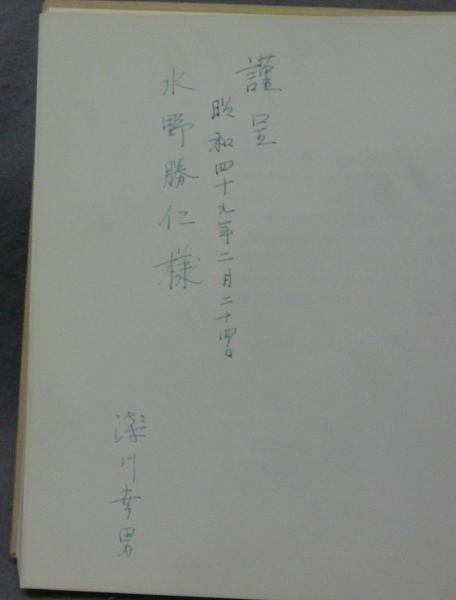 謹呈
昭和四十九年二月二十四日
水野勝仁様
川幸男